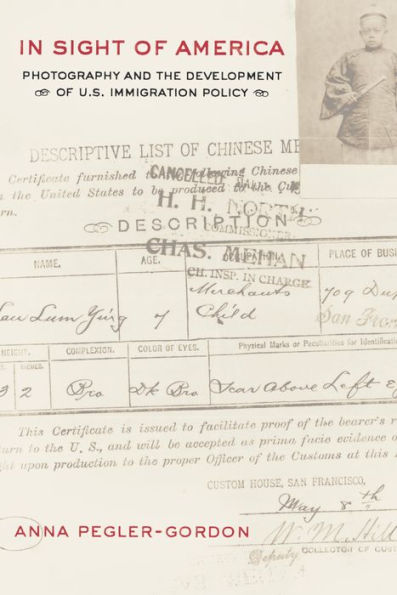 IN SIGHT OF AMERICA
PHOTOGRAPHY AND THE DEVELOPMENT
OF U.S. IMMIGRATION POLICY
DESCRIPTIVE LIST OF CHINESE ME
Certificate furnished following Chinese
the United States to be produced to the Cu
rn.
CANCELLED
H. H. NORTH
COMMISSIONER
DESCRIPTION
CHAS. MEHAN
CH. INSP. IN CHARGE
NAME. AGE. OCCUPATION. PLACE OF BUSI
Lum Ying 7 Merchants Child 709 Du
San Fran
HEIGHT. COMPLEXION. COLOR OF EYES. Physical Marks or Peculiarities for Identificatio
INCHES.
3 2 Bro Dk Bro Scar Above Left Ey
This Certificate is issued to facilitate proof of the bearer's r
turn to the U. S., and will be accepted as prima facie evidence o
ght upon production to the proper Officer of the Customs at this
CUSTOM HOUSE, SAN FRANCISCO,
May 8th
ANNA PEGLER-GORDON
W. M. Hill
Deputy COLLECTOR OF CUST